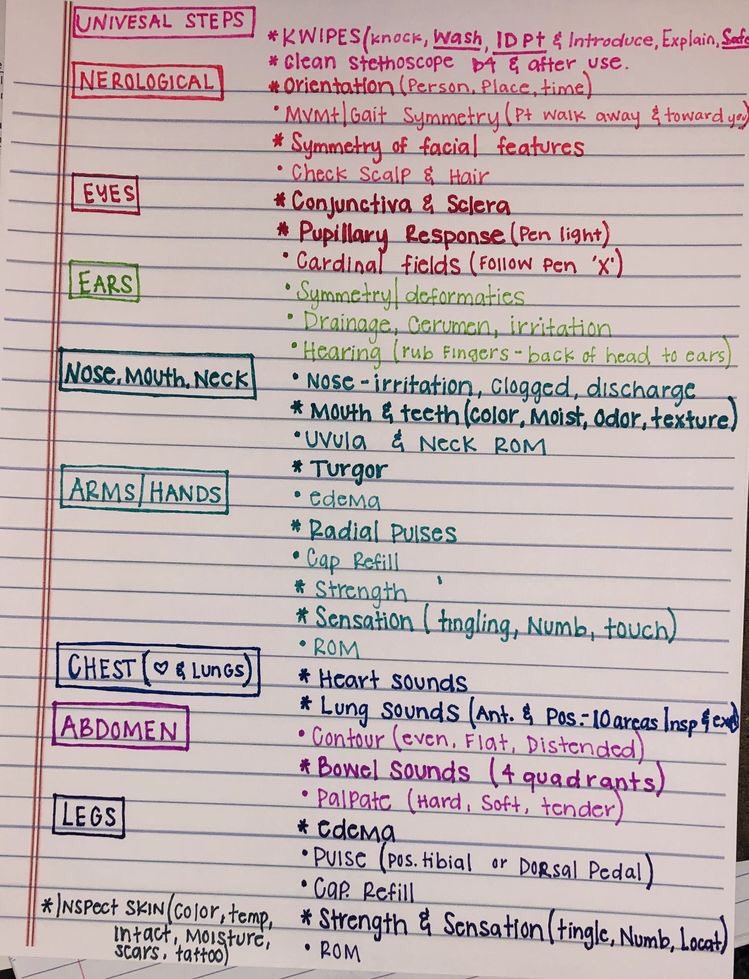 UNIVESAL STEPS
*KWIPES(knock, Wash, ID Pt & Introduce, Explain, Safe
*Clean stethoscope B4 & after use.
NEROLOGICAL
*Orientation (Person, Place, time)
• MVMt|Gait Symmetry (Pt walk away & toward you)
* Symmetry of facial features
• Check Scalp & Hair
EYES
* Conjunctiva & Sclera
* Pupillary Response (Pen light)
• Cardinal fields (Follow Pen 'X')
EARS
• Symmetry| deformaties
• Drainage, Cerumen, irritation
• Hearing (rub Fingers - back of head to ears)
Nose, Mouth, Neck
• Nose - irritation, Clogged, discharge
* Mouth & teeth (color, Moist, Odor, texture)
• UVula & Neck ROM
* Turgor
ARMS/HANDS
• edema
* Radial Pulses
• Cap Refill
* Strength
* Sensation (tingling, Numb, touch)
• ROM
CHEST (♡ & LUNGS)
* Heart sounds
* Lung sounds (Ant. & Pos.- 10 areas Insp & exp)
ABDOMEN
• Contour (even, Flat, Distended)
* Bowel Sounds (4 quadrants)
• Palpate (Hard, Soft, tender)
LEGS
* edema
• Pulse (Pos. tibial or Dorsal Pedal)
• Cap. Refill
* Strength & Sensation (tingle, Numb, Locat)
• ROM
*INSPECT SKIN (Color, temp,
intact, Moisture,
scars, tattoo)